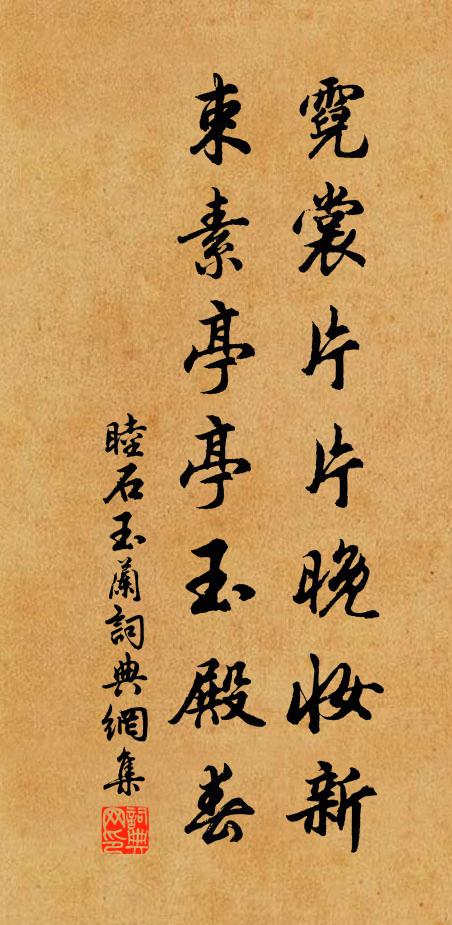 霓裳片片晚妆新
束素亭亭玉殿春
睦石玉蘭詞典網集
詞典网印